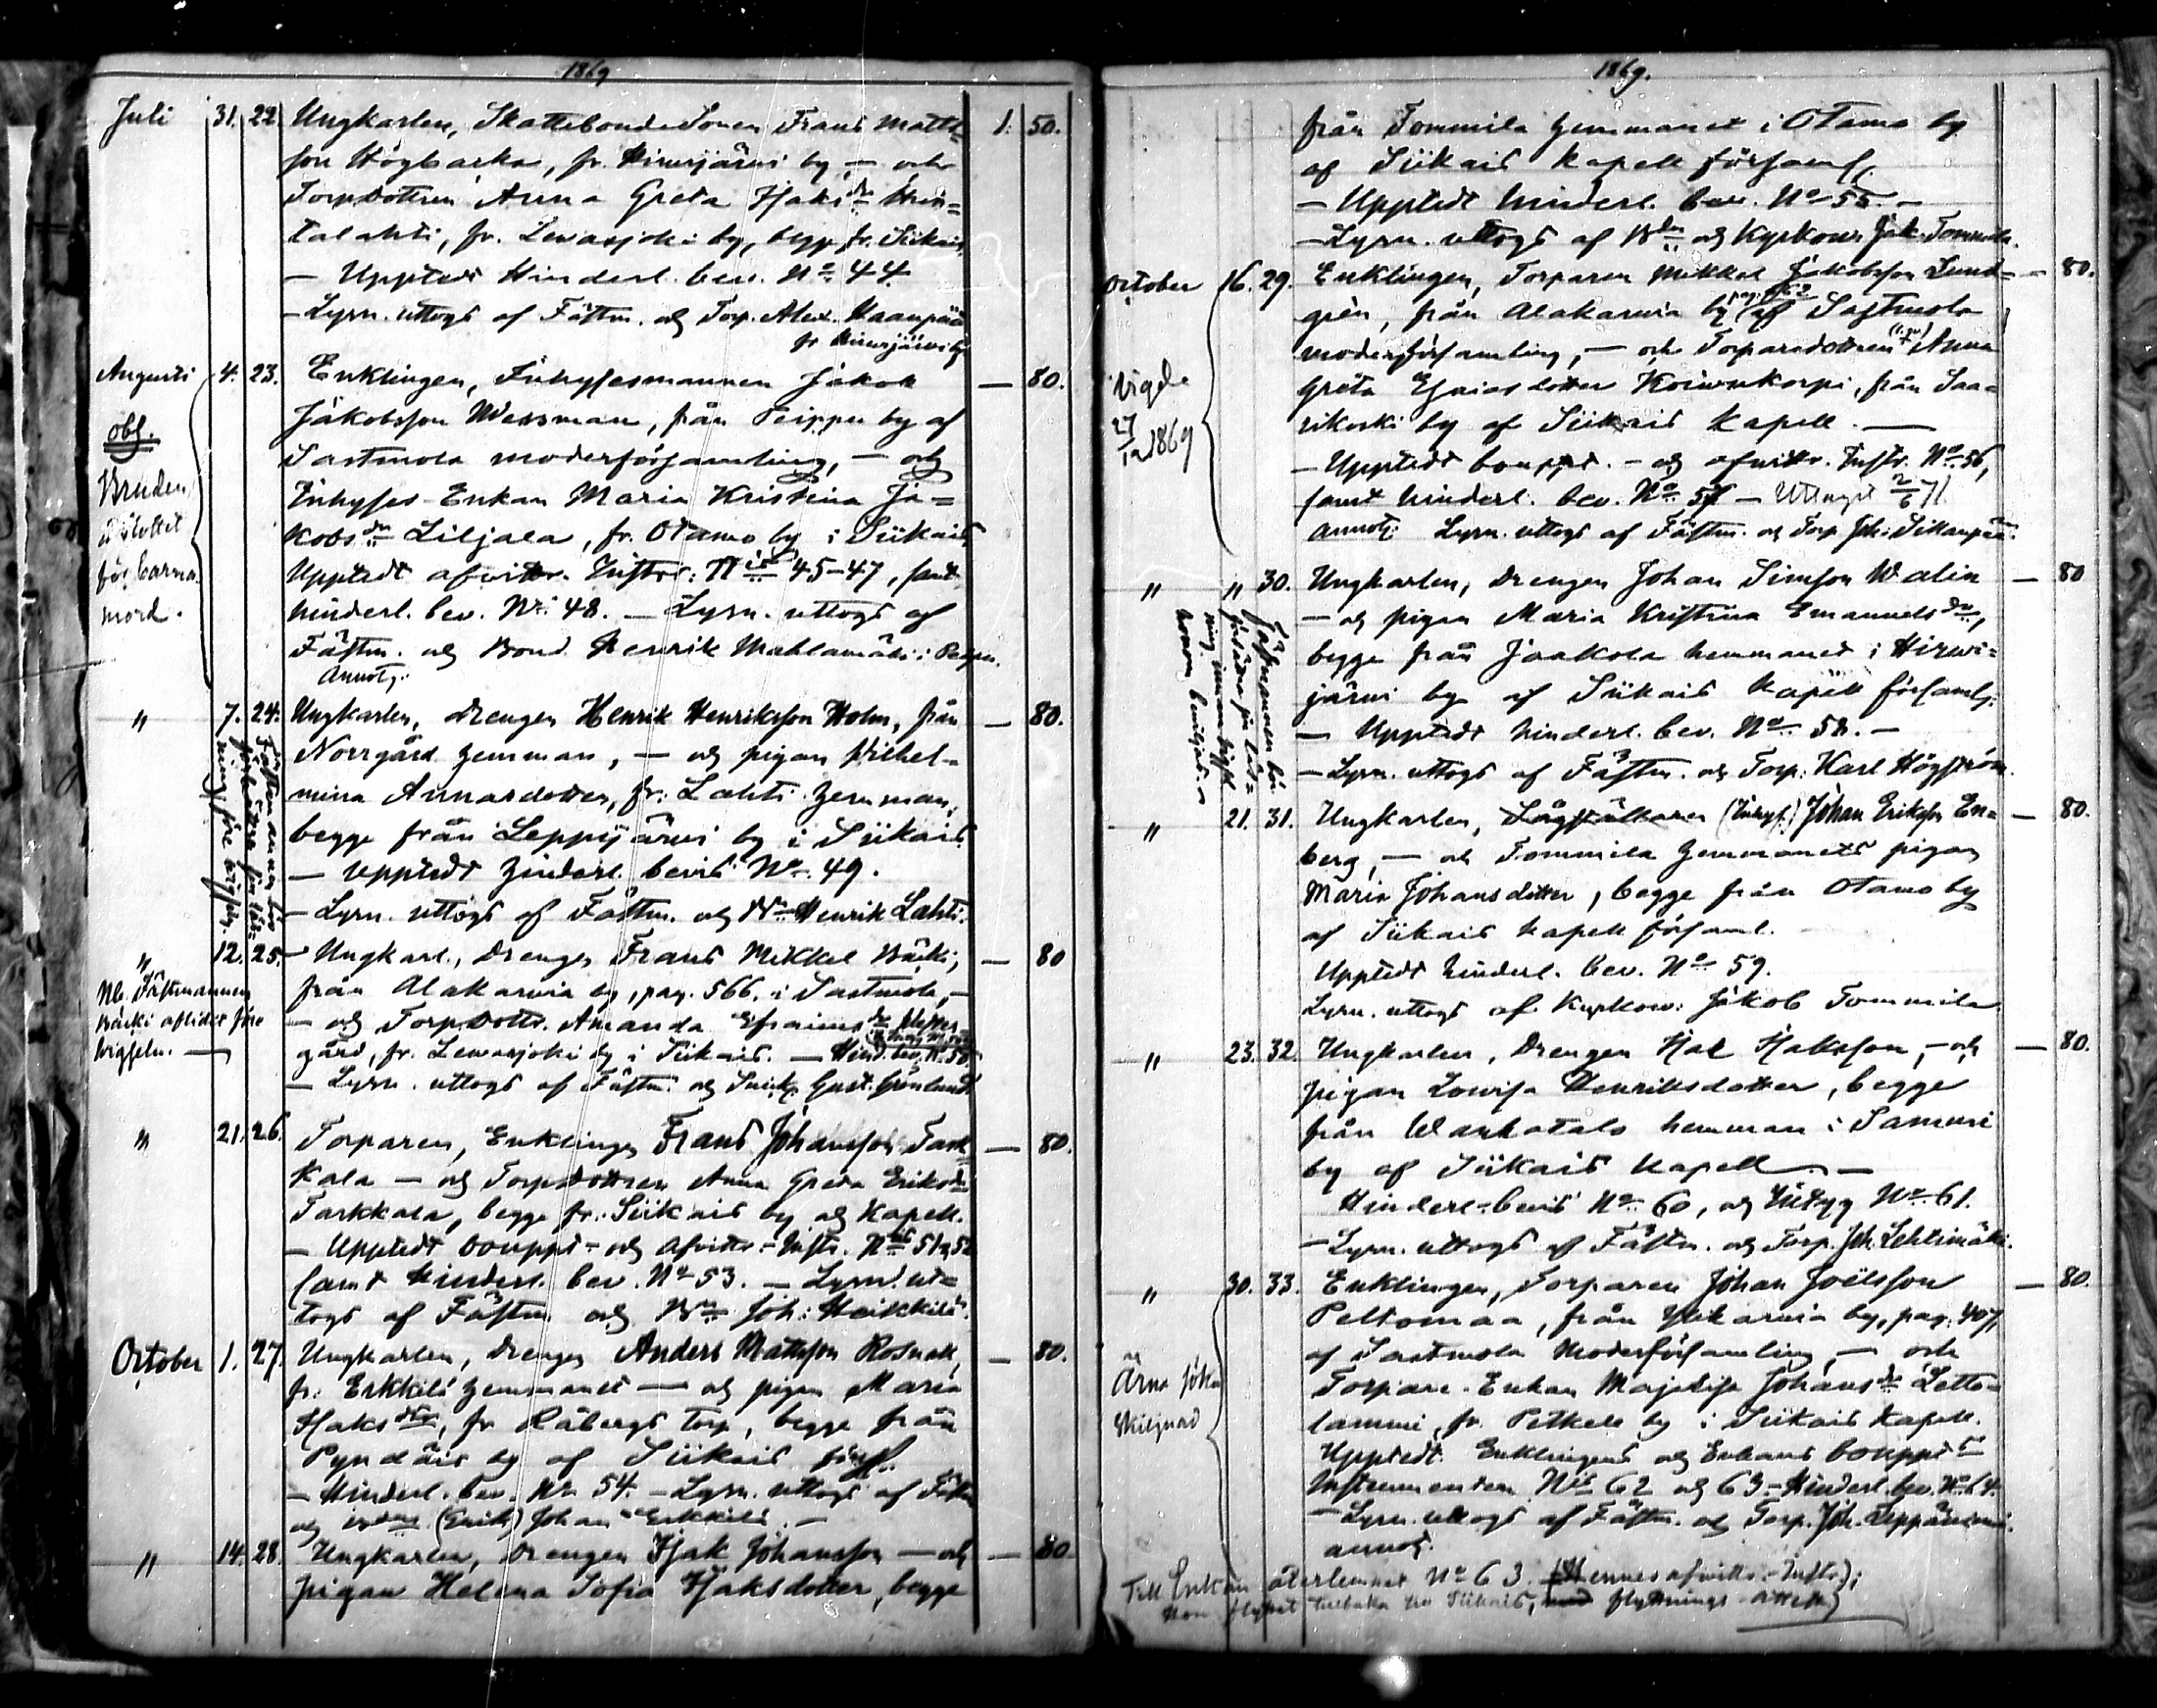 1869
Juli 31. 22. Ungkarlen, Skattebonde Sonen Frans Matts=
son Högbacka, fr. Hirvijärvi by, — och
Torpdottren Anna Greta Isaksdr Hin=
talahti, fr. Levasjoki by, begge fr. Siikais
— Uppted. Hinderl. bev. No 44.
— Lysn. uttogs af Fästm. och Torp. Alex. Haanpää
fr Hirvijärvi by
Augusti 4. 23. Enklingen, Inhysesmannen Jakob — 80.
Jakobsson Wessman, från Peippu by af
obs. Sastmola moderförsamling, — och
Bruden Inhyses-Enkan Maria Kristina Ja=
kobsdr Liljala, fr. Otamo by i Siikais
för barna Upptedt afvittr. Instr: No 45-47, samt
mord. hinderl. bev. Nr: 48. — Lysn. uttogs af
Fästm. och Bond. Henrik Mahlamäki i Peippu.
Annotg.
" 7. 24. Ungkarlen, drengen Henrik Henriksson Holm, från — 80.
Norrgård hemman, — och pigan Wilhel-
mina Annasdotter, fr. Lahti hemman,
begge från Leppijärvi by i Siikais.
— Upptedt hinderl. bevis No 49.
— Lysn. uttogs af Fästm. och Bn Henrik Lahti.
" 12. 25. Ungkarl., drengen Frans Mikkel Bäcki, — 80
Nb. Fästmannen från Alakarvia by, pag. 566. i Sastmola, —
Bäcki afliden före — och Torpdottr. Amanda Efraimsdr
vigseln. — gård, fr. Levasjoki by i Siikais. — Hind. bev. N. 50
— Lysn. uttogs af Fästm. och Gust. Grönlund
" 21. 26. Torparen, Enklingen Frans Johansson Tark — 80.
kala — och Torpdottren Anna Greta Eriksdr
Tarkkala, begge fr. Siikais by och Kapell.
— Upptedt bouppt- och afvittr.- Instr. No 51 o 52
samt Hinderl. bev. No 53. — Lysn. ut=
togs af Fästm och Bn Joh: Heikkilä.
October 1. 27. Ungkarlen, drengen Anders Mattsson Rosnell, — 80.
fr: Erkkilä hemmanet — och pigan Maria
Isaksdtr, fr Råbergs torp, begge från
Pyndäis by af Siikais förs.
— Hinderl. bev. Nr 54. — Lysn. uttogs af Fästm
och (Erik) Johan Erkkilä. —
" 14. 28. Ungkarlen, drengen Isak Johansson — och — 80.
pigan Helena Sofia Isaksdotter, begge
1869.
från Tommila hemmanet i Otamo by
af Siikais kapell församl.
— Upptedt hinderl. bev. No 55. —
— Lysn. uttogs af Bdn och Kyrkov. Jak. Tommila.
October 16. 29. Enklingen, Torparen Mikkel Jakobsson Lund= — 80.
grén, från Alakarvia by af Sastmola
moderförsamling, — och Torparedottren Anna
Vigde Greta Esaiasdotter Koivukorpi, från Saa=
27/12 1869 rikoski by af Siikais kapell. —
— Upptedt bouppt. - och afvittr. Instr. No 56,
samt hinderl. bev. No 57 — Uttaget 2/6 71.
Annotg. Lysn. uttogs af Fästm. och Torp Joh: Siikanpää.
" " 30. Ungkarlen, drengen Johan Simsson Walin — 80
— och pigan Maria Kristina Emanuelsdr,
begge från Jaakola hemmanet i Hirvi=
järvi by af Siikais kapell församlg:
— Upptedt hinderl. bev. No 58. —
— Lysn. uttogs af Fästm. och Torp. Karl Högström.
" 21. 31. Ungkarlen, (Inhys.) Johan Eriksson En= — 80.
berg, — och Tommila hemmanets pigan
Maria Johansdotter, begge från Otamo by
af Siikais kapell församl.
Upptedt hinderl. bev. No 59.
Lysn. uttogs af Kyrkov: Jakob Tommila
" 23. 32. Ungkarlen, drengen Isak Isaksson, — och — 80.
pigan Lovisa Henriksdotter, begge
från Warkatalo hemman i Sammi
by af Siikais kapell. —
Hinderl.-bevis No 60, och Intyg No 61.
— Lysn. uttogs af Fästm. och Torp. Joh. Lehtimäki.
" 30. 33. Enklingen, Torparen Johan Joëlsson — 80.
Peltomaa, från Ylikarvia by, pag. 407,
af Sastmola Moderförsamling, — och
Ärna söka Torpare-Enkan Majalisa Johansdr Letto=
skilgnad lammi, fr. Petkele by i Siikais kapell.
Upptedt: Enklingens och Enkans bouppts
Instrumenten No 62 och 63 - Hinderl. bev. No 64.
— Lysn. uttogs af Fästm. och Torp. Joh. Leppäniemi.
annot.
Till Enkan återlemnat No 63. (Hennes afvittr.-Instr);
Hon flyttat tillbaka till Siikais, flyttnings-attest)